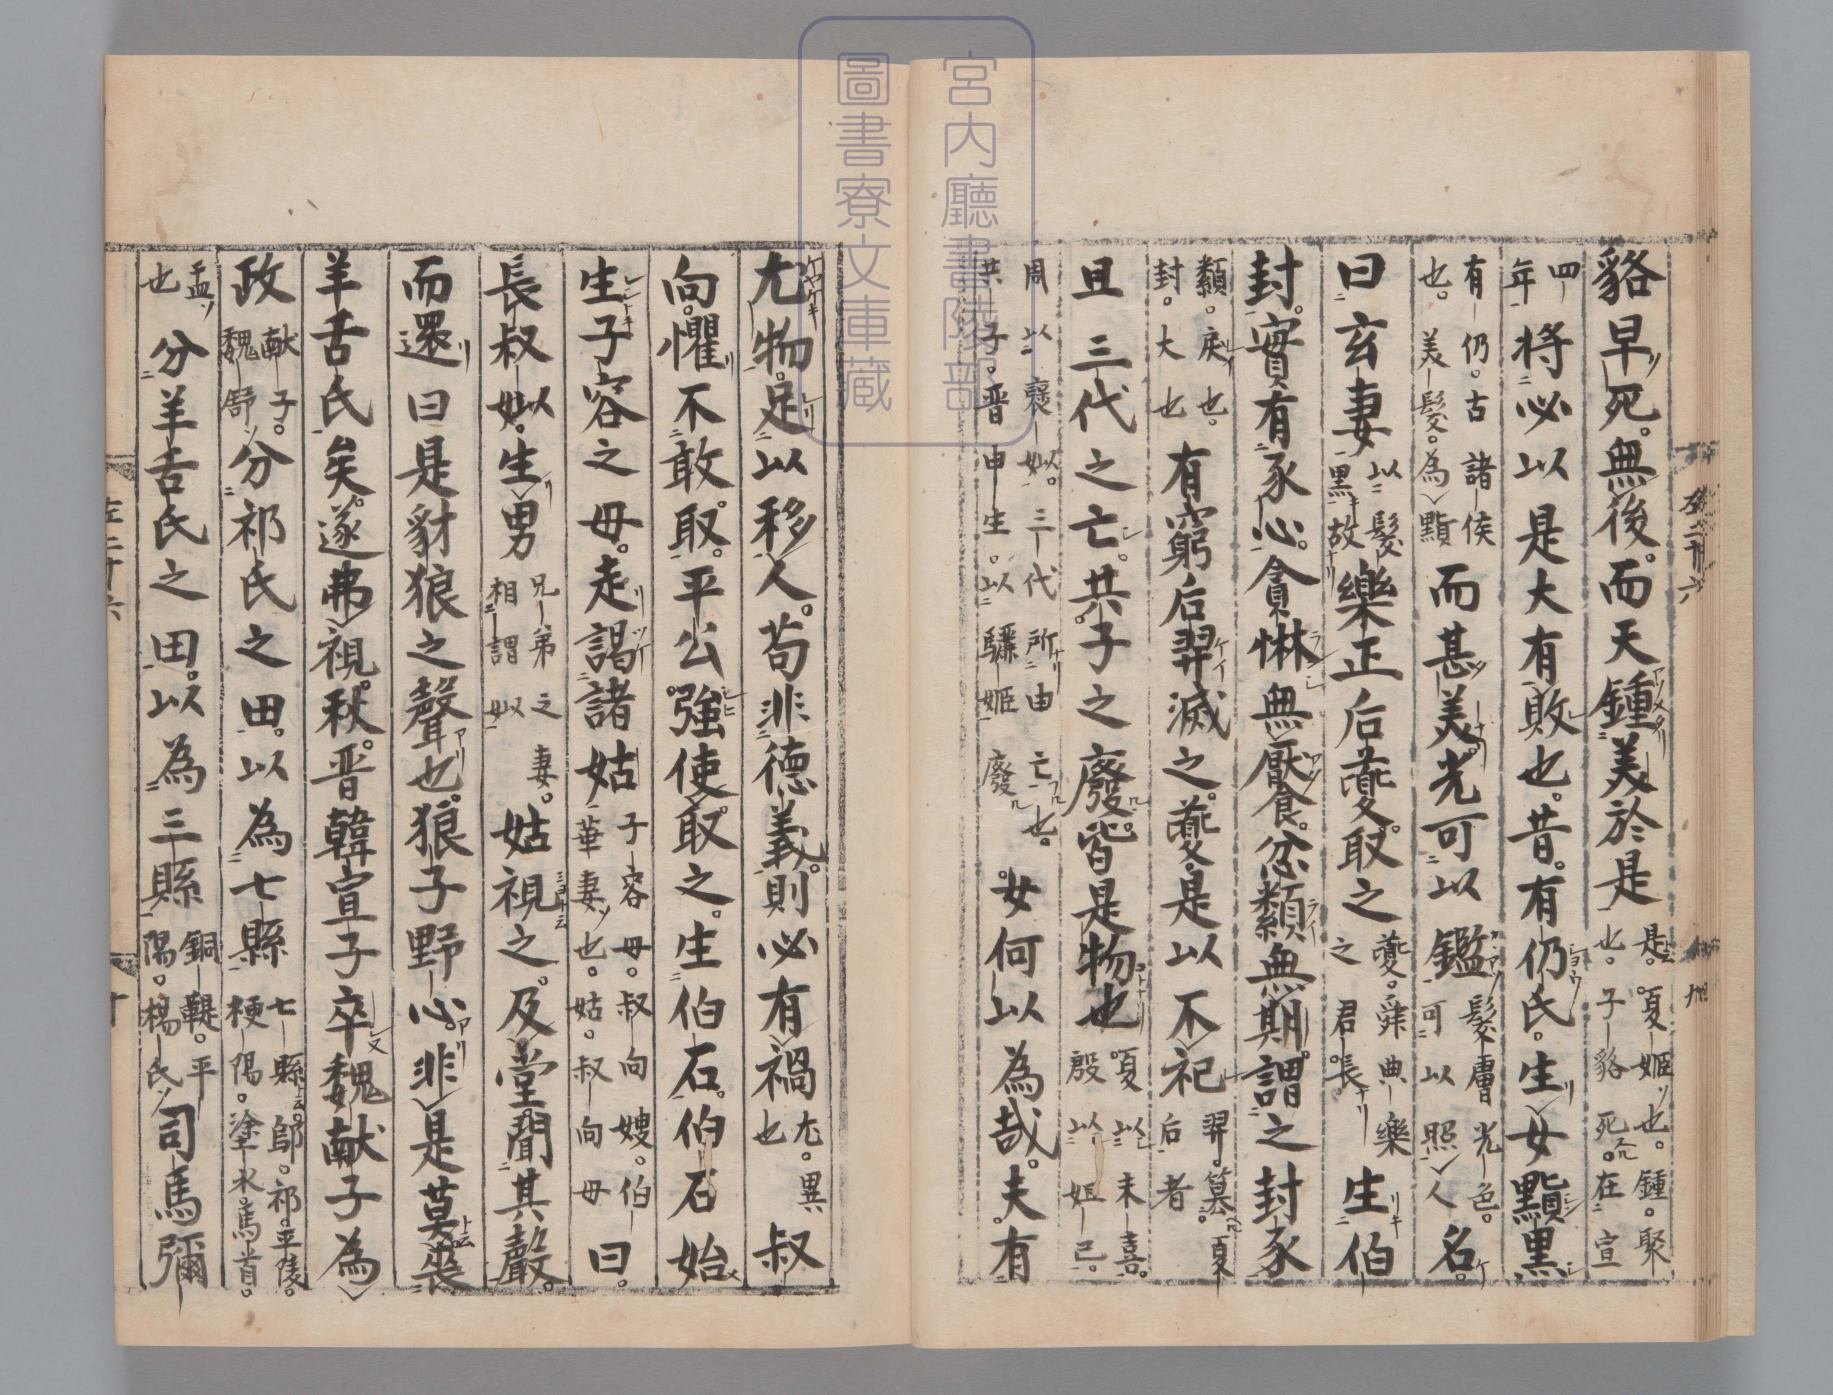 貉早死無後而天鍾美於是是夏姬也鍾聚也子貉死在宣
四年將必以是大有敗也昔有仍氏生女黰黒
有仍古諸侯也美髪為黰而甚美光可以鑑髪膚光色可以照人名
曰玄妻以髪黒故樂正后夔取之夔舜典樂之君長生伯
封實有豕心貪惏無饜食忿纇無期謂之封豕
纇戾也封大也有窮后羿滅之夔是以不祀羿簒夏后者
且三代之亡共子之廢皆是物也夏以末喜殷以妲己
周以褒姒三代所由亡也共子晋申生以驪姬廢女何以為哉夫有
尤物足以移人苟非德義則必有禍尤異也叔
向懼不敢取平公強使取之生伯石伯石始
生子容之母走謁諸姑子容母叔向嫂伯華妻也姑叔向母曰
長叔姒生男兄弟之妻相謂姒姑視之及堂聞其聲
而還曰是豺狼之聲也狼子野心非是莫喪
羊舌氏矣遂弗視秋晋韓宣子卒魏献子為
政献子魏舒分祁氏之田以為七縣七縣鄔祁平陵梗陽塗水馬首
盂也分羊舌氏之田以為三縣銅鞮平陽楊氏司馬彌
宮内廳書陵部
圖書寮文庫藏